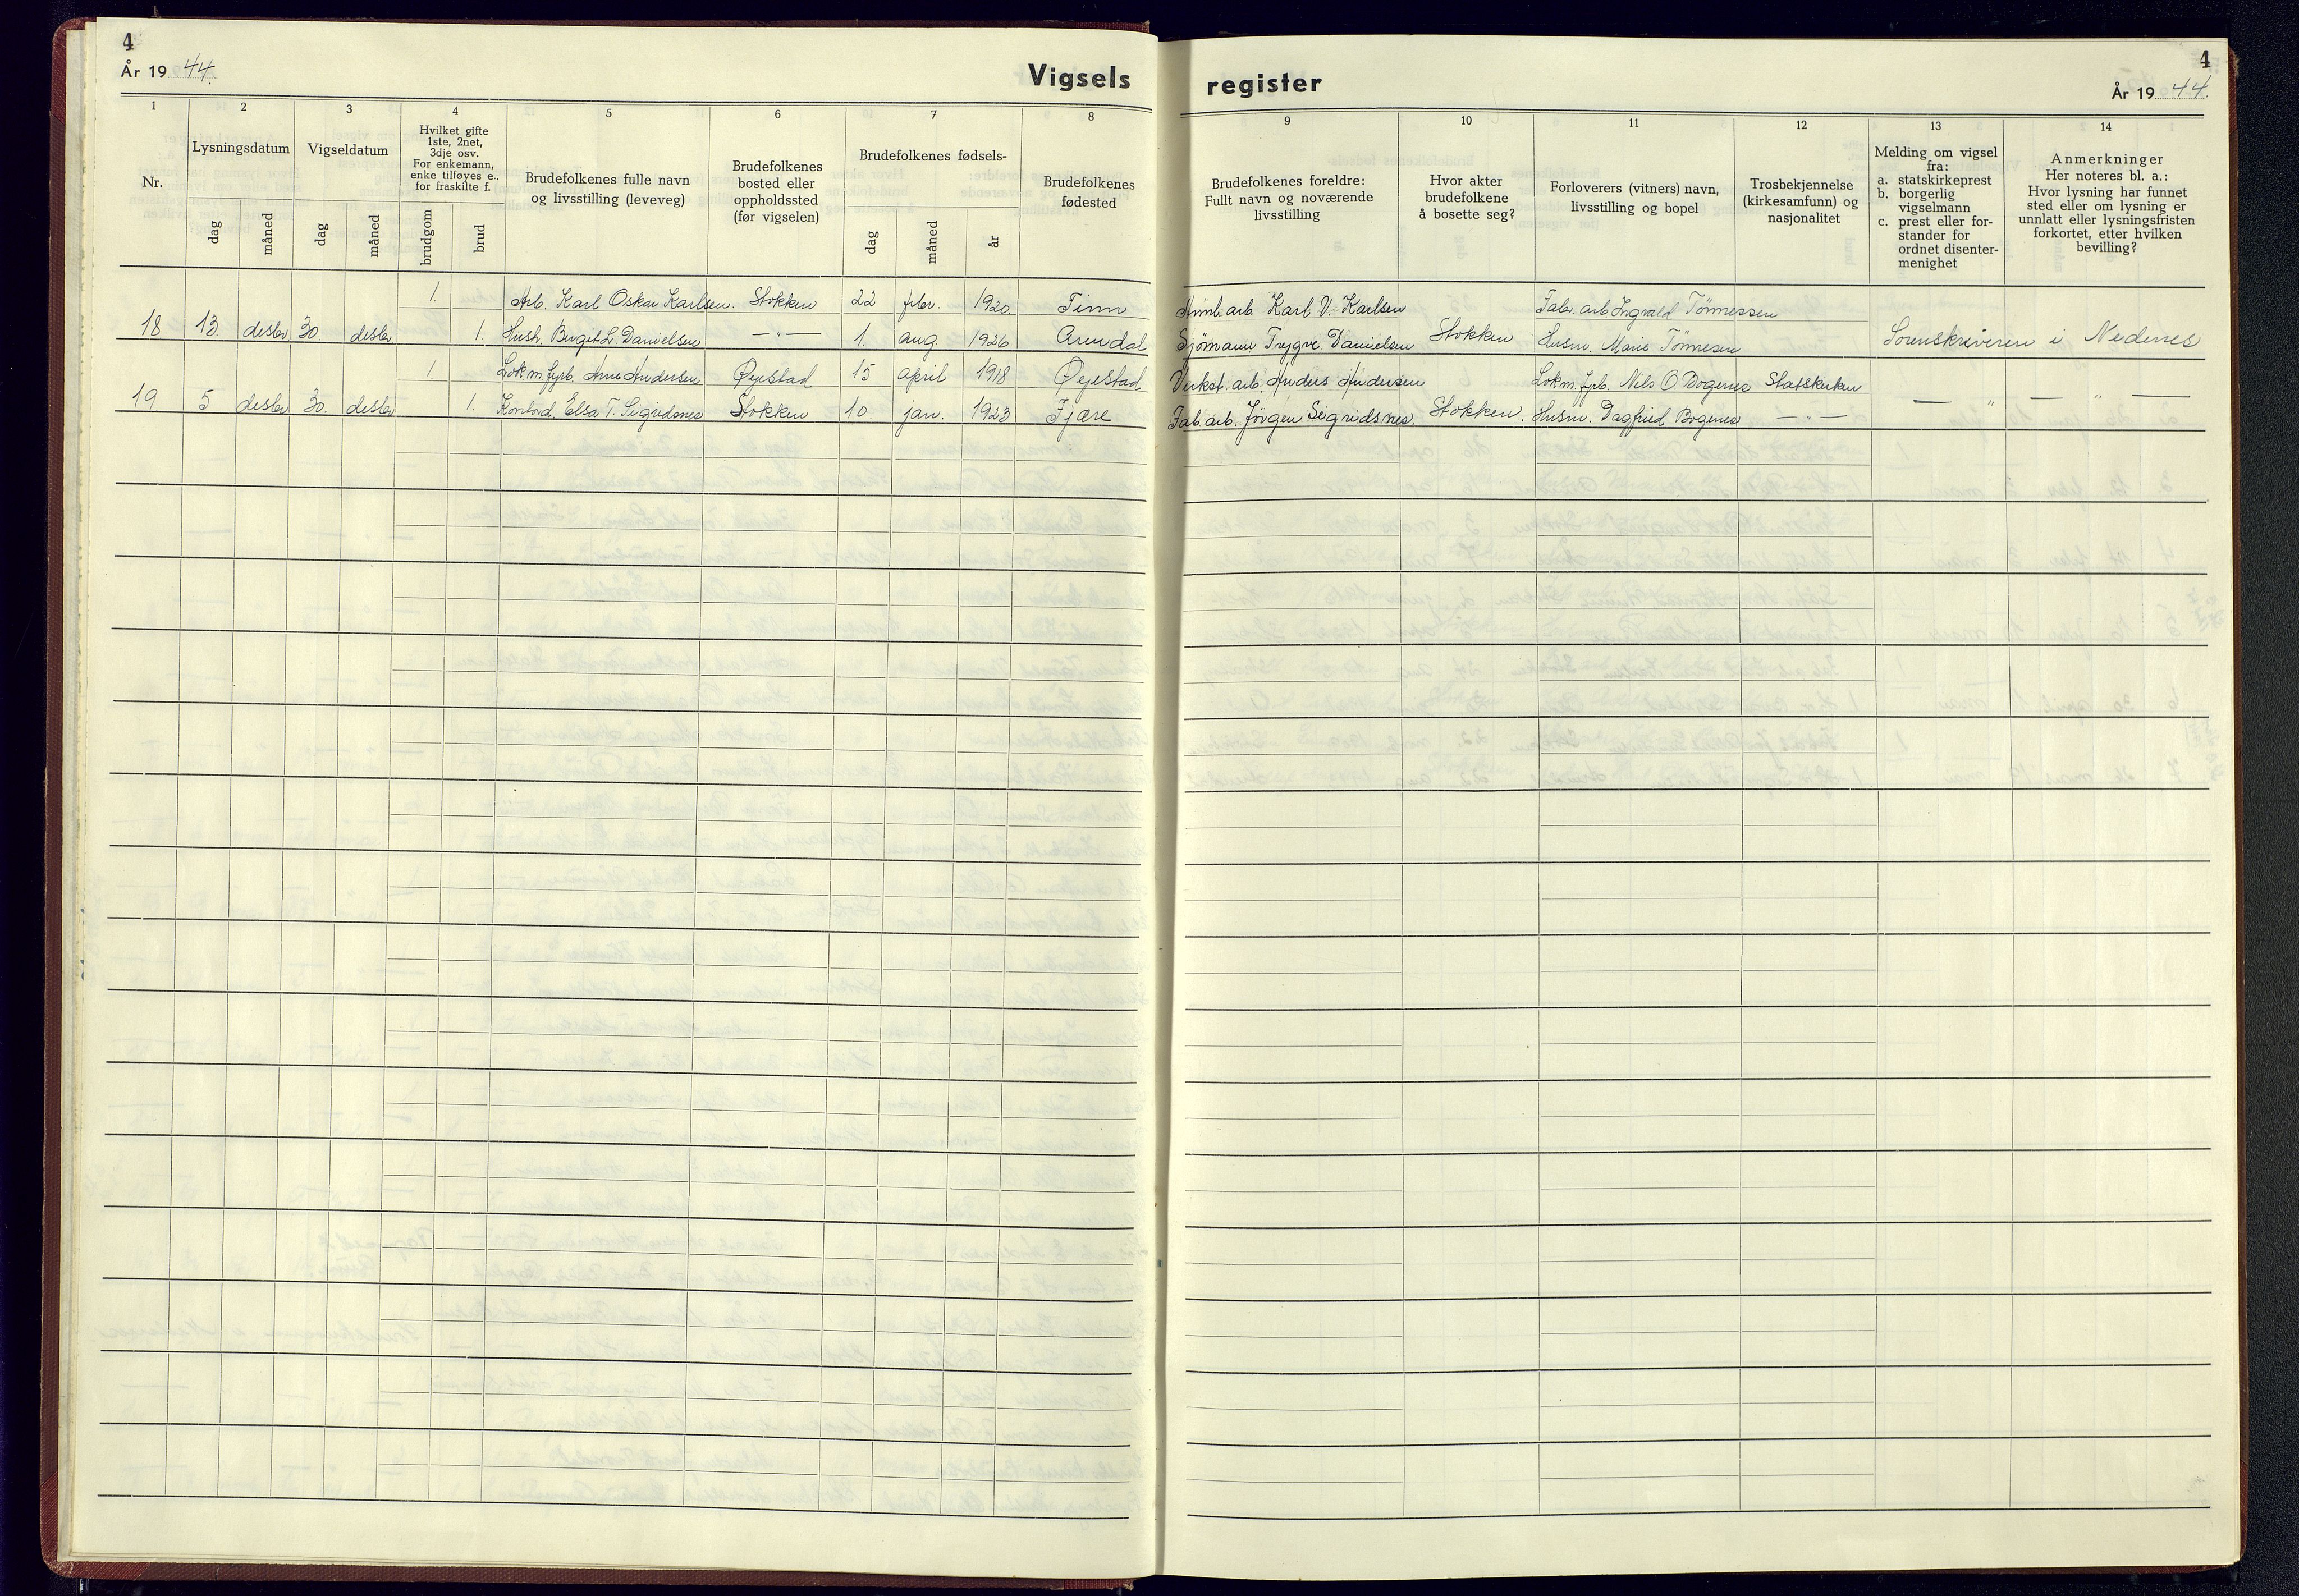 4
År 19 44.
Vigsels
register
4
År 19 44.
1 2 3 4 5 6 7 8
9 10 11 12 13 14
Nr.
Lysningsdatum
dag
måned
Vigseldatum
dag
måned
Hvilket gifte
1ste, 2net,
3dje osv.
For enkemann,
enke tilføyes e.,
for fraskilte f.
brudgom
brud
Brudefolkenes fulle navn
og livsstilling (leveveg)
Brudefolkenes
bosted eller
oppholdssted
(før vigselen)
Brudefolkenes fødsels-
dag
måned
år
Brudefolkenes
fødested
Brudefolkenes foreldre:
Fullt navn og noværende
livsstilling
Hvor akter
brudefolkene
å bosette seg?
Forloverers (vitners) navn,
livsstilling og bopel
Trosbekjennelse
(kirkesamfunn) og
nasjonalitet
Melding om vigsel
fra:
a. statskirkeprest
b. borgerlig
vigselmann
c. prest eller for-
stander for
ordnet disenter-
menighet
Anmerkninger
Her noteres bl. a.:
Hvor lysning har funnet
sted eller om lysning er
unnlatt eller lysningsfristen
forkortet, etter hvilken
bevilling?
1. Arb. Karl Oskar Karlsen. Stokken 22 febr. 1920 Tinn Karl V. Karlsen Fabr. arb Ingvald Tönnessen
18 13. desbr 30 desbr 1. Hush. Birgit L. Danielsen — " — 1. aug 1926 Arendal Sjömann Trygve Danielsen Stokken Husm. Marie Tönnesen Sorenskriveren i Nedenes
1. Lok.m. fyrb. Arne Andersen Øyestad 15 april 1918 Øyestad Verkst. arb Anders Andersen Lok.m. fyrb. Nils O. Bogenes Statskirken
19 5 desbr 30. desbr 1. Elsa T. Sigridsnes Stokken 10. jan. 1923 Fjære Fab. arb. Jörgen Sigridsnes. Stokken. Husm. Dagfried Bogenes — " — — " — " —